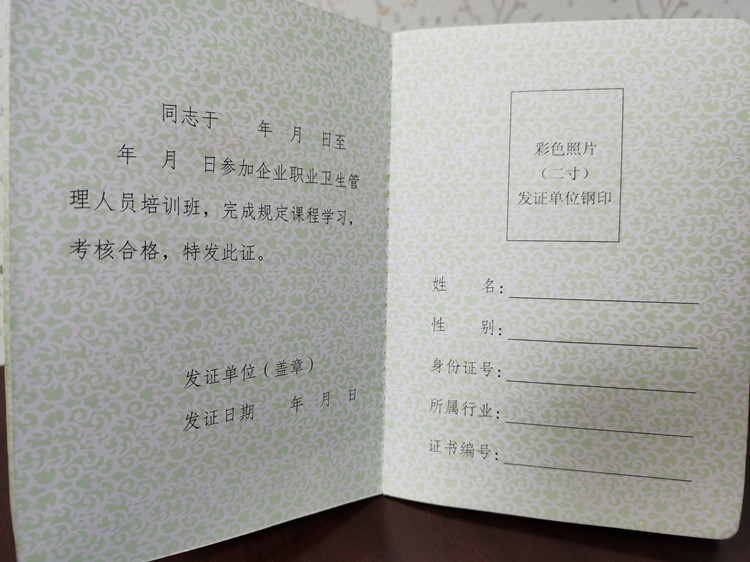 同志于 年 月 日至
年 月 日参加企业职业卫生管
理人员培训班，完成规定课程学习，
考核合格，特发此证。
发证单位（盖章）
发证日期 年 月 日
彩色照片
（二寸）
发证单位钢印
姓 名：
性 别：
身份证号：
所属行业：
证书编号：